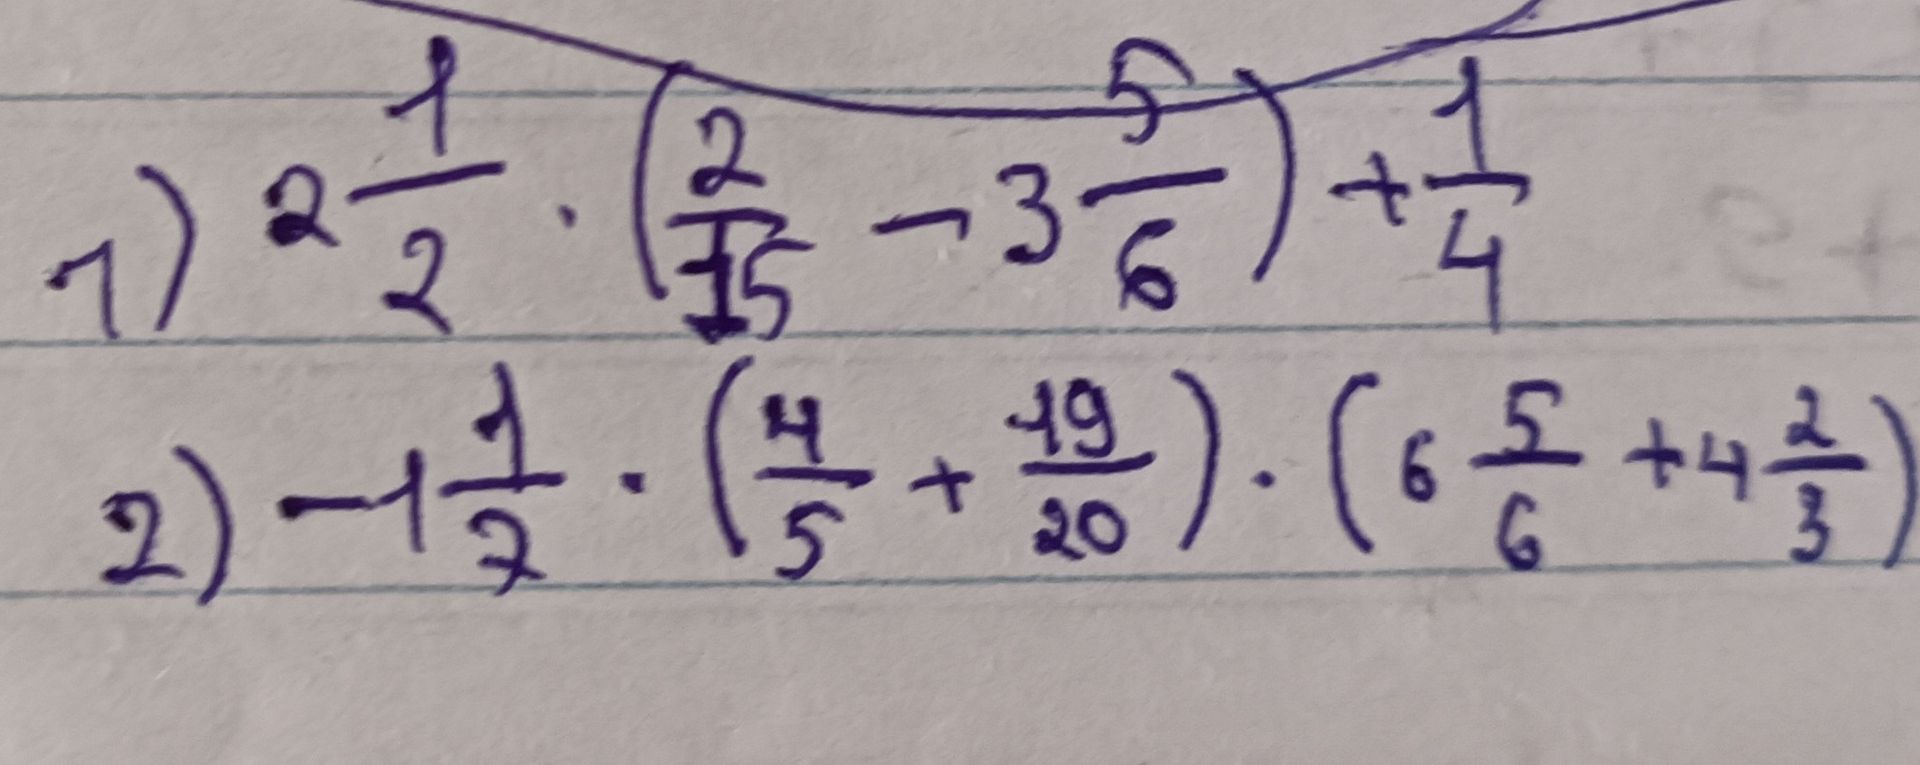 1) 2 1/2 · (2/15 − 3 5/6) + 1/4
2) −1 1/7 · (4/5 + 19/20) · (6 5/6 + 4 2/3)